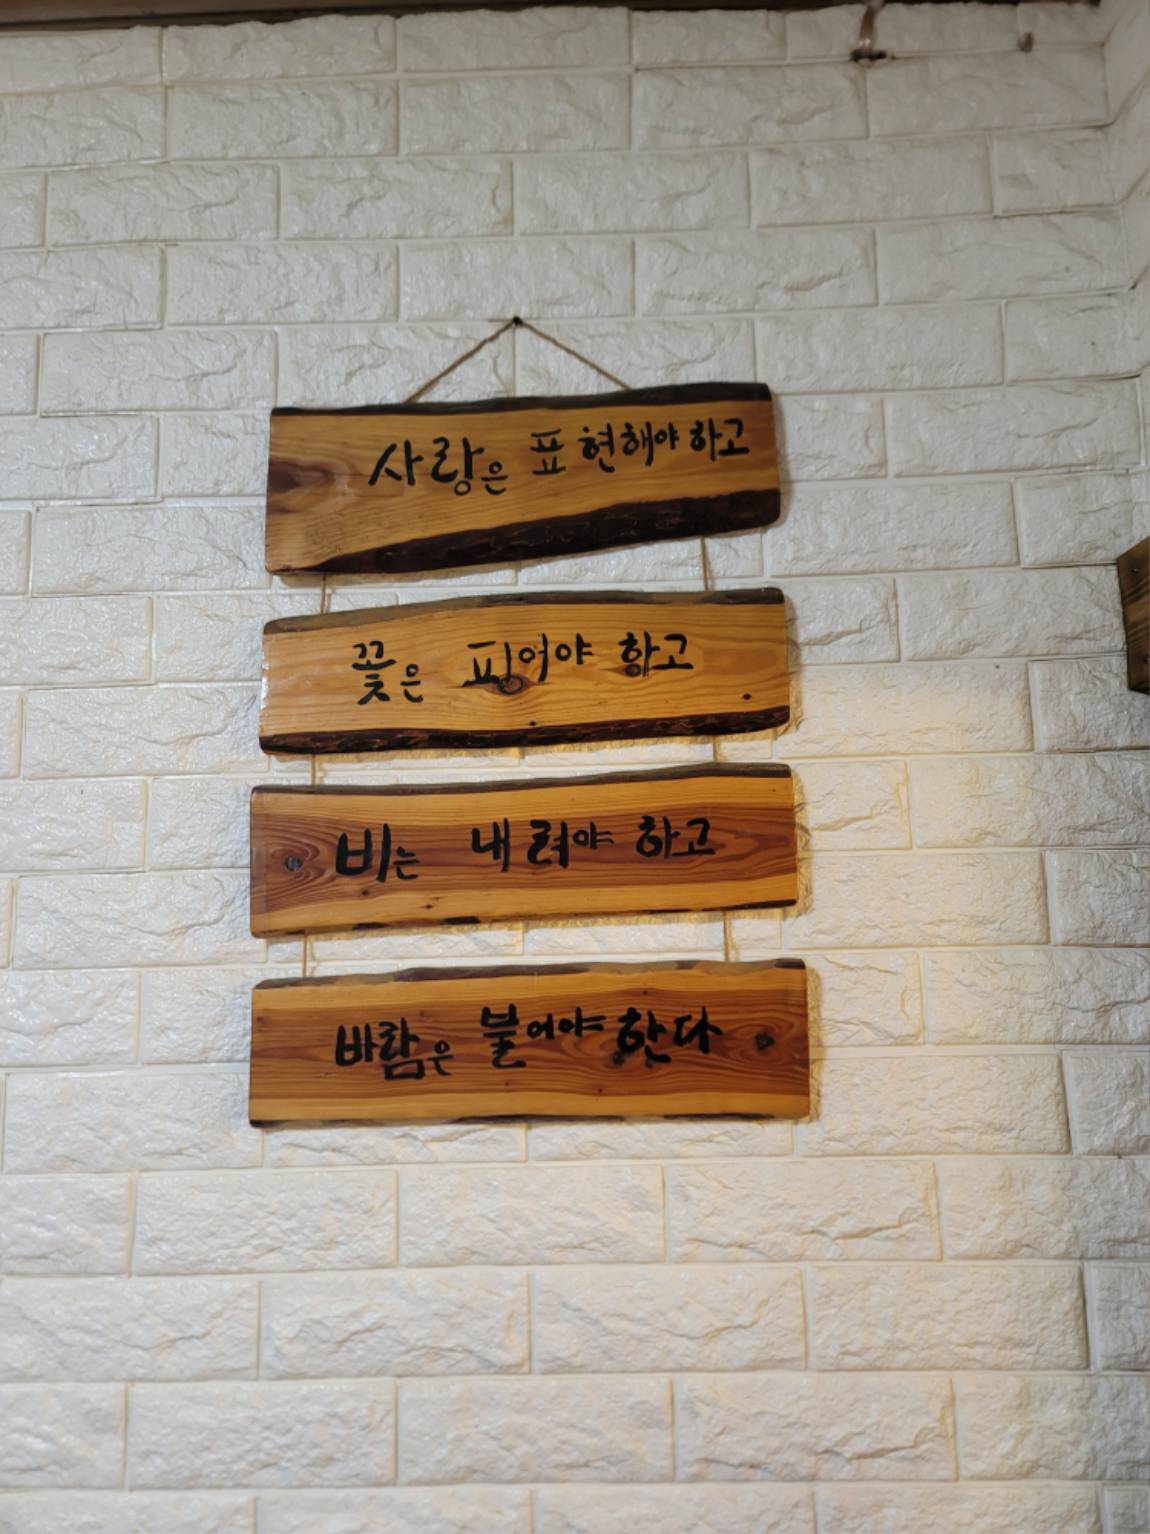 사랑은 표현해야 하고
꽃은 핑어야 하고
비는 내려야 하고
바람은 불어야 한다